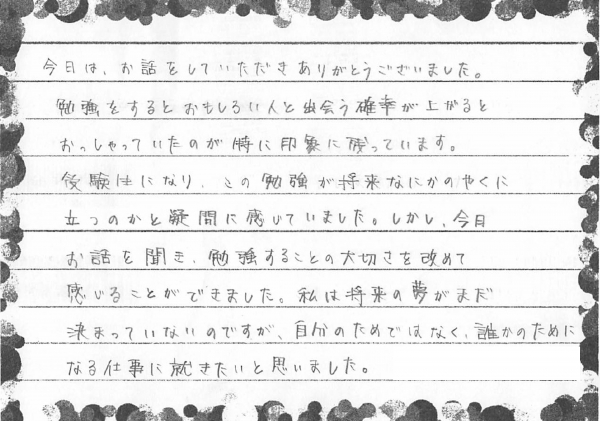 今日は、お話をしていただきありがとうございました。
勉強をするとおもしろい人と出会う確率が上がると
おっしゃっていたのが特に印象に残っています。
受験生になり、この勉強が将来なにかのやくに
立つのかと疑問に感じていました。しかし、今日
お話を聞き、勉強することの大切さを改めて
感じることができました。私は将来の夢がまだ
決まっていないのですが、自分のためではなく、誰かのために
なる仕事に就きたいと思いました。